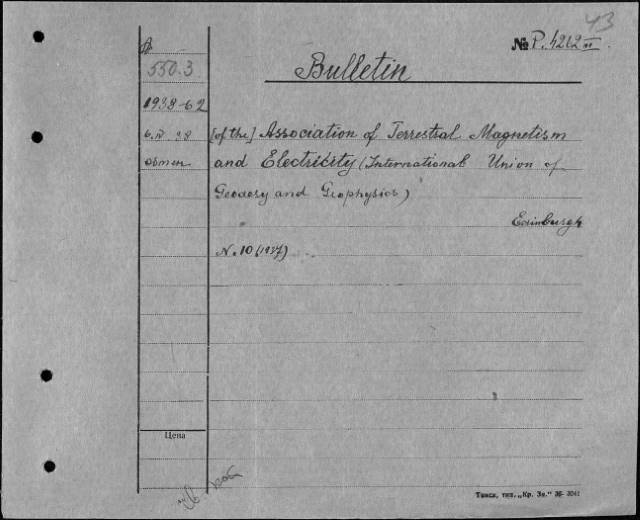 43
№ P. 4262 II
A
550.3
Bulletin
1938-62
6.IV.38 [of the] Association of Terrestral Magnetism
обмен and Electricity (International Union of
Geodesy and Geophysics)
Edinburgh
N. 10 (1937)
Цена
Томск, тип. „Кр. Зн."